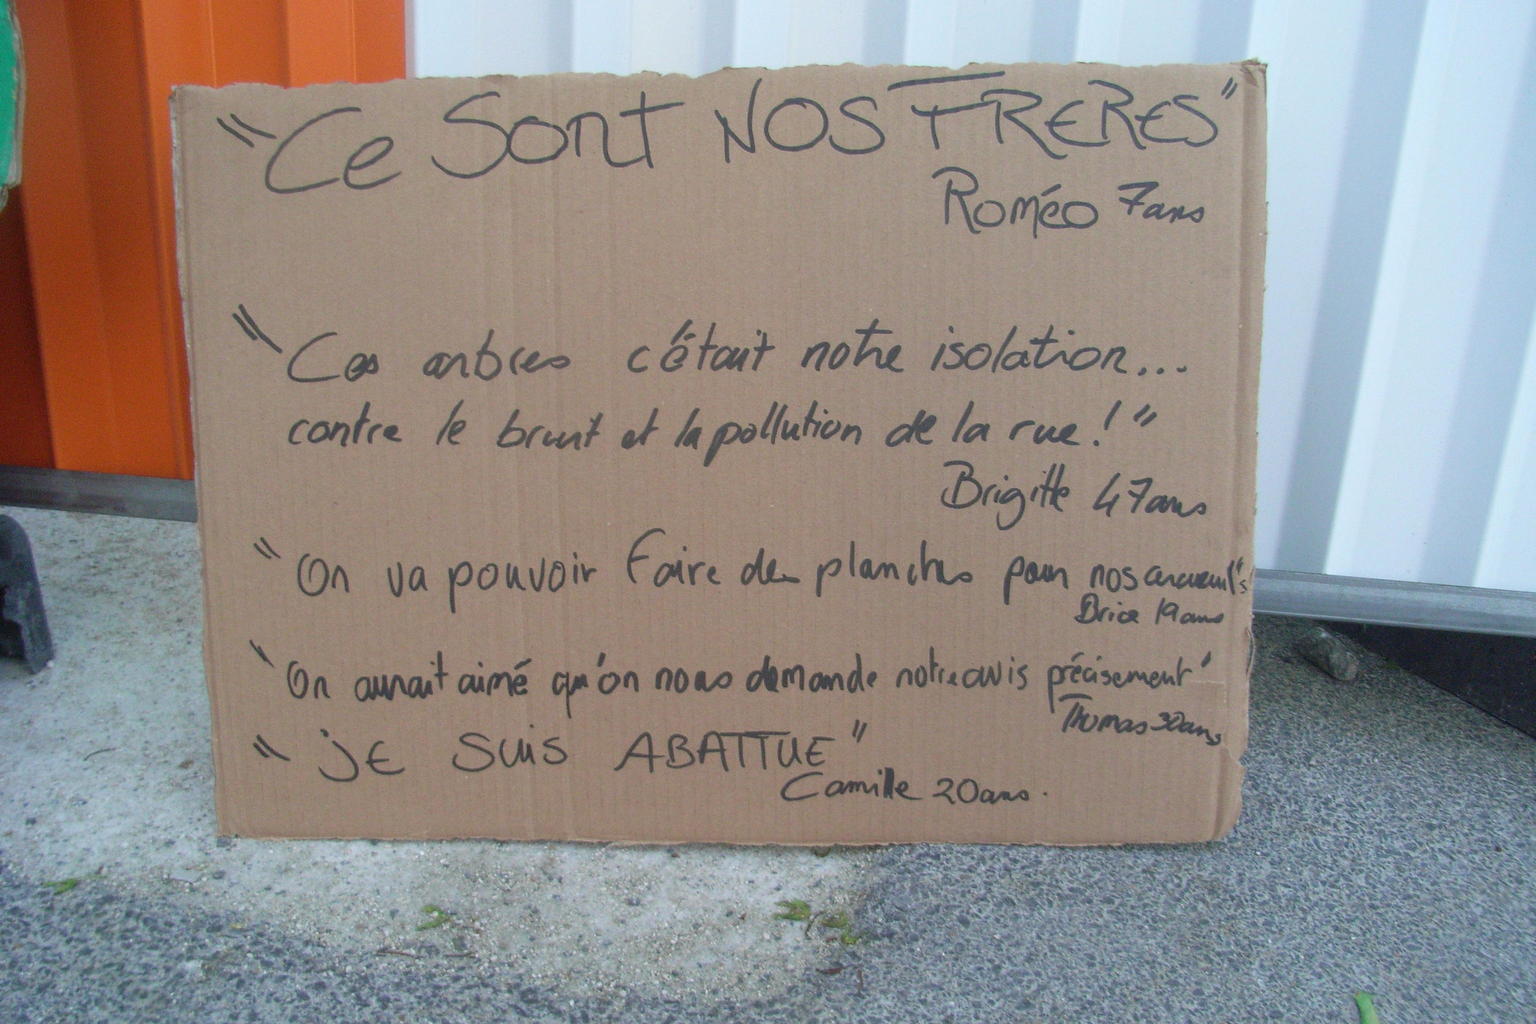 "Ce SONT NOS FRERES"
Roméo 7ans
"Ces arbres c'était notre isolation...
contre le bruit et la pollution de la rue!"
Brigitte 47ans
"On va pouvoir faire des planches pour nos cercueuils"
Brice 19ans
"On aurait aimé qu'on nous demande notre avis précisement"
Thomas 30ans
"jE SUiS ABATTUE"
Camille 20ans.